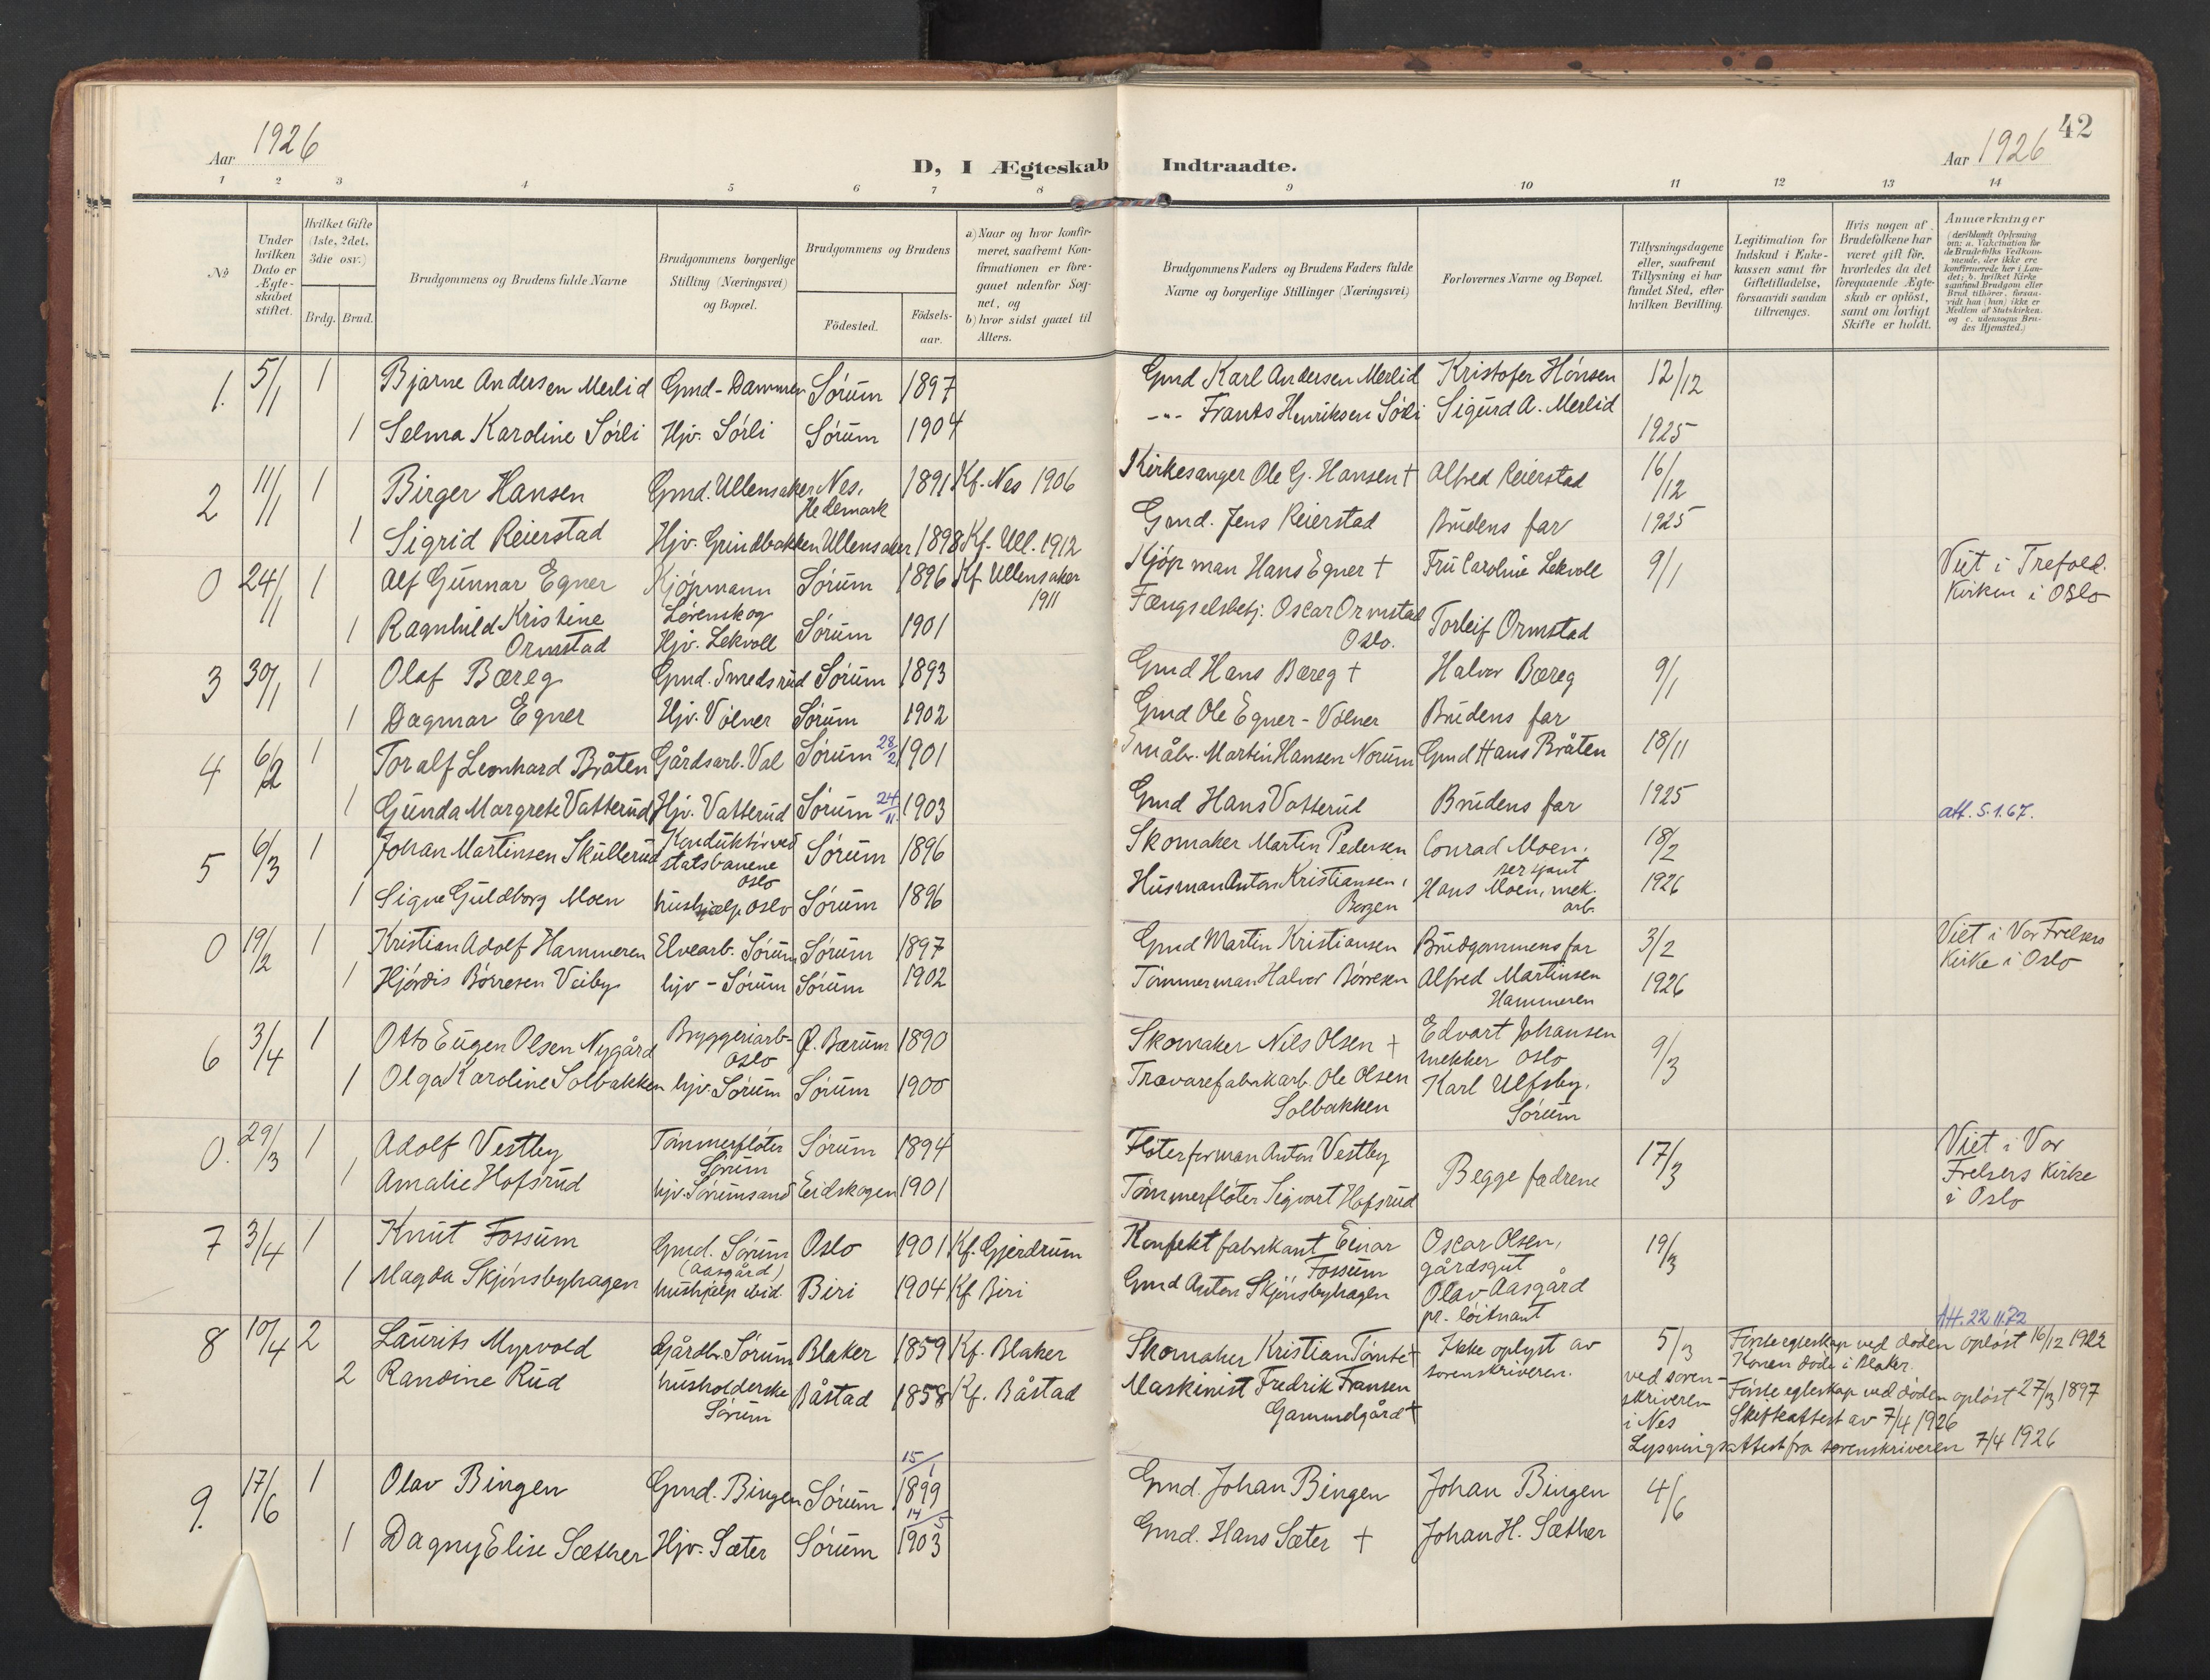 Aar 1926
D, I Ægteskab Indtraadte.
Aar 1926
42
1 2 3 4 5 6 7 8 9 10 11 12 13 14
No
Under hvilken Dato er Ægteskabet stiftet.
Hvilket Gifte (1ste, 2det, 3die osv.)
Brdg. Brud.
Brudgommens og Brudens fulde Navne
Brudgommens borgerlige Stilling (Næringsvei) og Bopæl.
Brudgommens og Brudens
Födested.
Födsels-aar.
a) Naar og hvor konfirmeret, saafremt Konfirmationen er foregaaet udenfor Sognet, og
b) hvor sidst gaaet til Alters.
Brudgommens Faders og Brudens Faders fulde Navne og borgerlige Stillinger (Næringsvei)
Forlovernes Navne og Bopæl.
Tillysningsdagene eller, saafremt Tillysning ei har fundet Sted, efter hvilken Bevilling.
Legitimation for Indskud i Enkekassen samt for Giftetilladelse, forsaavidt saadan tiltrænges.
Hvis nogen af Brudefolkene har været gift för, hvorledes da det foregaaende Ægteskab er oplöst, samt om lovligt Skifte er holdt.
Anmærkninger (deriblandt Oplysning om: a. Vakcination för de Brudefolks Vedkommende, der ikke ere konfirmerede her i Landet; b. hvilket Kirkesamfund Brudgom eller Brud tilhörer, forsaavidt han (hun) ikke er Medlem af Statskirken. og c. udensogns Brudes Hjemsted.)
1. 5/1 1 Bjarne Andersen Merlid Gmd - Dammen Sórum 1897 Gmd Karl Andersen Merlid Kristofer Hónsen 12/12
1 Selma Karoline Sórli Hjv. Sórli Sórum 1904 -"- Frants Henriksen Sórli Sigurd A. Merlid 1925
2 11/1 1 Birger Hansen Gmd. Ullensaker Nes, Hedemark 1891 Kf. Nes 1906 Kirkesanger Ole G. Hansen † Alfred Reierstad 16/12
1 Sigrid Reierstad Hjv. Grindbakken Ullensaker 1898 Kf. Ull. 1912 Gmd. Jens Reierstad Brudens far 1925
0 24/1 1 Alf Gunnar Egner Kjópmann Lørenskog Sórum 1896 Kf Ullensaker 1911 Kjópman Hans Egner † Fru Caroline Lekvoll 9/1 Viet i Trefold. Kirken i Oslo
1 Ragnhild Kristine Ormstad Hjv. Lekvoll Sórum 1901 Fængselsbetj. Oscar Ormstad Oslo. Torleif Ormstad
3 30/1 1 Olaf Bæreg Gmd. Smedsrud Sórum 1893 Gmd Hans Bæreg † Halvor Bæreg 9/1
1 Dagmar Egner Hjv. Vólner Sórum 1902 Gmd Ole Egner - Vólner Brudens far
4 6/2 1 Toralf Leonhard Bråten Gårdsarb. Val Sórum 28/2 1901 Småbr. Martin Hansen Norum Gmd Hans Bråten 18/11
1 Gunda Margrete Vatterud Hjv. Vatterud Sórum 24/11. 1903 Gmd Hans Vatterud Brudens far 1925 att. 5.1.67.
5 6/3 1 Johan Martinsen Skullerud Konduktór ved statsbanene Oslo Sórum 1896 Skomaker Martin Pedersen Conrad Moen, sersjant 18/2
1 Signe Guldborg Moen hushjælp Oslo Sórum 1896 Husman Anton Kristiansen, Borgen Hans Moen, mek. arb. 1926
0 19/2 1 Kristian Adolf Hammeren Elvearb. Sórum Sórum 1897 Gmd Martin Kristiansen Brudgommens far 3/2 Viet i Vor Frelsers Kirke i Oslo
1 Hjórdis Bórresen Veiby hjv - Sórum Sórum 1902 Tómmerman Halvor Bórresen Alfred Martinsen Hammeren 1926
6 3/4 1 Otto Eugen Olsen Nygård Bryggeriarb- Oslo Ø. Bærum 1890 Skomaker Nils Olsen † Edvart Johansen mekker Oslo 9/3
1 Olga Karoline Solbakken hjv. Sórum Sórum 1900 Trævarefabrikarb. Ole Olsen Solbakken Karl Ulfsby, Sórum
0. 29/3 1 Adolf Vestby Tómmerflóter Sórum Sórum 1894 Flóterforman Anton Vestby Begge fædrene 17/3 Viet i Vor Frelsers Kirke i Oslo
1 Amalie Hofsrud hjv. Sórumsand Eidskogen 1901 Tómmerflóter Sigvart Hofsrud
7 3/4 1 Knut Fossum Gmd. Sórum (Aasgård) Oslo 1901 Kf. Gjerdrum Konfektfabrikant Einar Fossum Oscar Olsen, gårdsgut 19/3
1 Magda Skjónsbyhagen hushjælp ibid Biri 1904 Kf Biri Gmd Anton Skjónsbyhagen Olav Aasgård pr. lóitnant
Att. 22.11.72
8 10/4 2 Laurits Myrvold Gårdbr. Sórum Blaker 1859 Kf. Blaker Skomaker Kristian Tómte † Ikke oplyst av sorenskriveren. 5/3 ved sorenskriveren i Nes Fórste egteskap ved dóden oplóst 16/12 1922 Konen dóde i Blaker.
2 Randine Rud husholderske Sórum Båstad 1858 Kf. Båstad Maskinist Fredrik Fransen Gammelgård † Fórste egteskap ved dóden oplóst 27/3 1897
Skifteattest av 7/4 1926
Lysningsattest fra sorenskriveren 7/4 1926
9. 17/6 1 Olav Bingen Gmd. Bingen Sórum 15/1 1899 Gmd. Johan Bingen Johan Bingen 4/6
1 Dagny Elise Sæther Hjv. Sæter Sórum 14/5 1903 Gmd. Hans Sæter † Johan H. Sæther